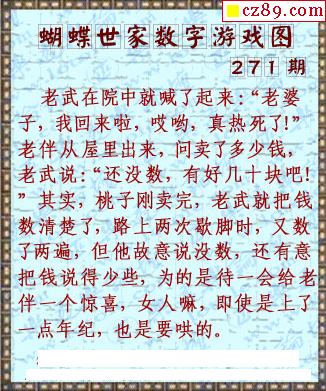 cz89.com
蝴蝶世家数字游戏图
271期
老武在院中就喊了起来：“老婆
子，我回来啦，哎哟，真热死了！”
老伴从屋里出来，问卖了多少钱，
老武说：“还没数，有好几十块吧！
”其实，桃子刚卖完，老武就把钱
数清楚了，路上两次歇脚时，又数
了两遍，但他故意说没数，还有意
把钱说得少些，为的是待一会给老
伴一个惊喜，女人嘛，即使是上了
一点年纪，也是要哄的。